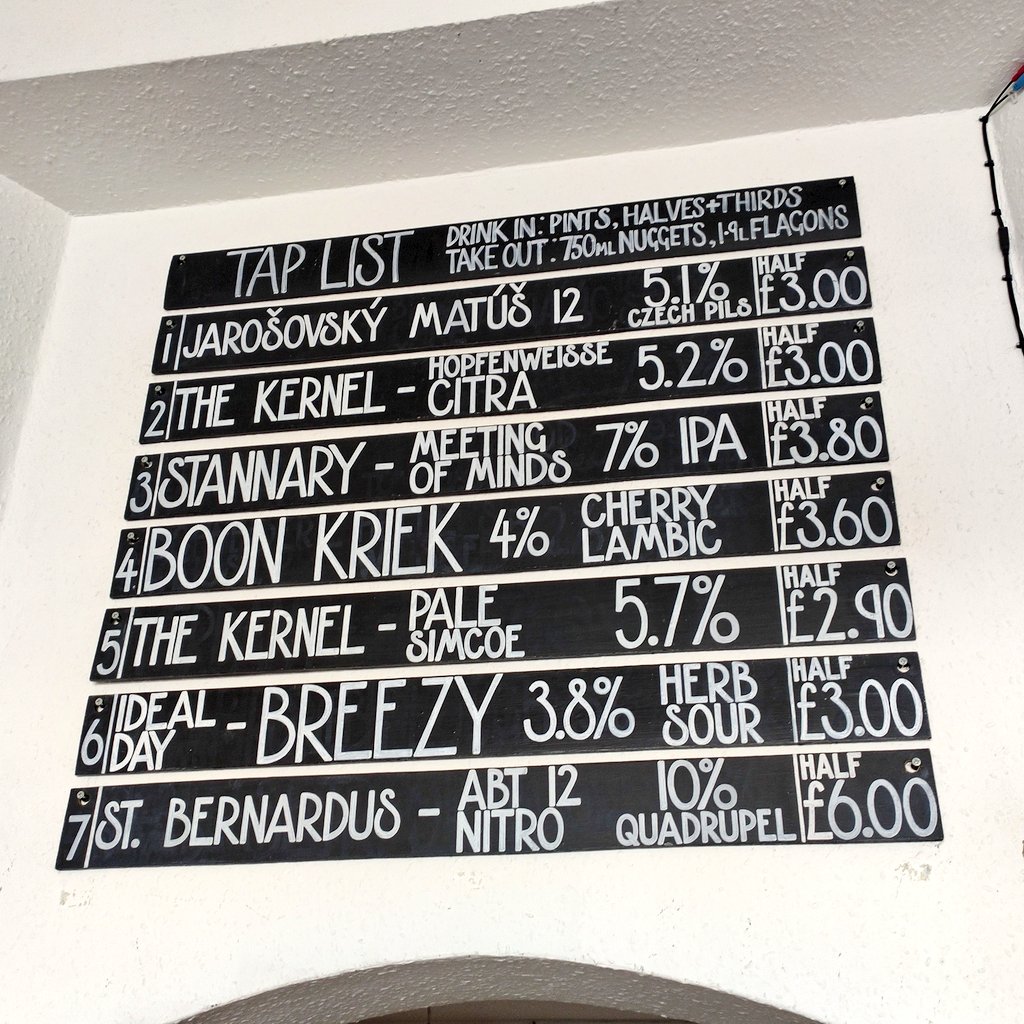 TAP LIST
DRINK IN: PINTS, HALVES+THIRDS
TAKE OUT: 750ML NUGGETS, 1·9L FLAGONS
1 JAROŠOVSKÝ MATÚŠ 12 5.1% CZECH PILS HALF £3.00
2 THE KERNEL - HOPFENWEISSE CITRA 5.2% HALF £3.00
3 STANNARY - MEETING OF MINDS 7% IPA HALF £3.80
4 BOON KRIEK 4% CHERRY LAMBIC HALF £3.60
5 THE KERNEL - PALE SIMCOE 5.7% HALF £2.90
6 IDEAL DAY - BREEZY 3.8% HERB SOUR HALF £3.00
7 ST. BERNARDUS - ABT 12 NITRO 10% QUADRUPEL HALF £6.00